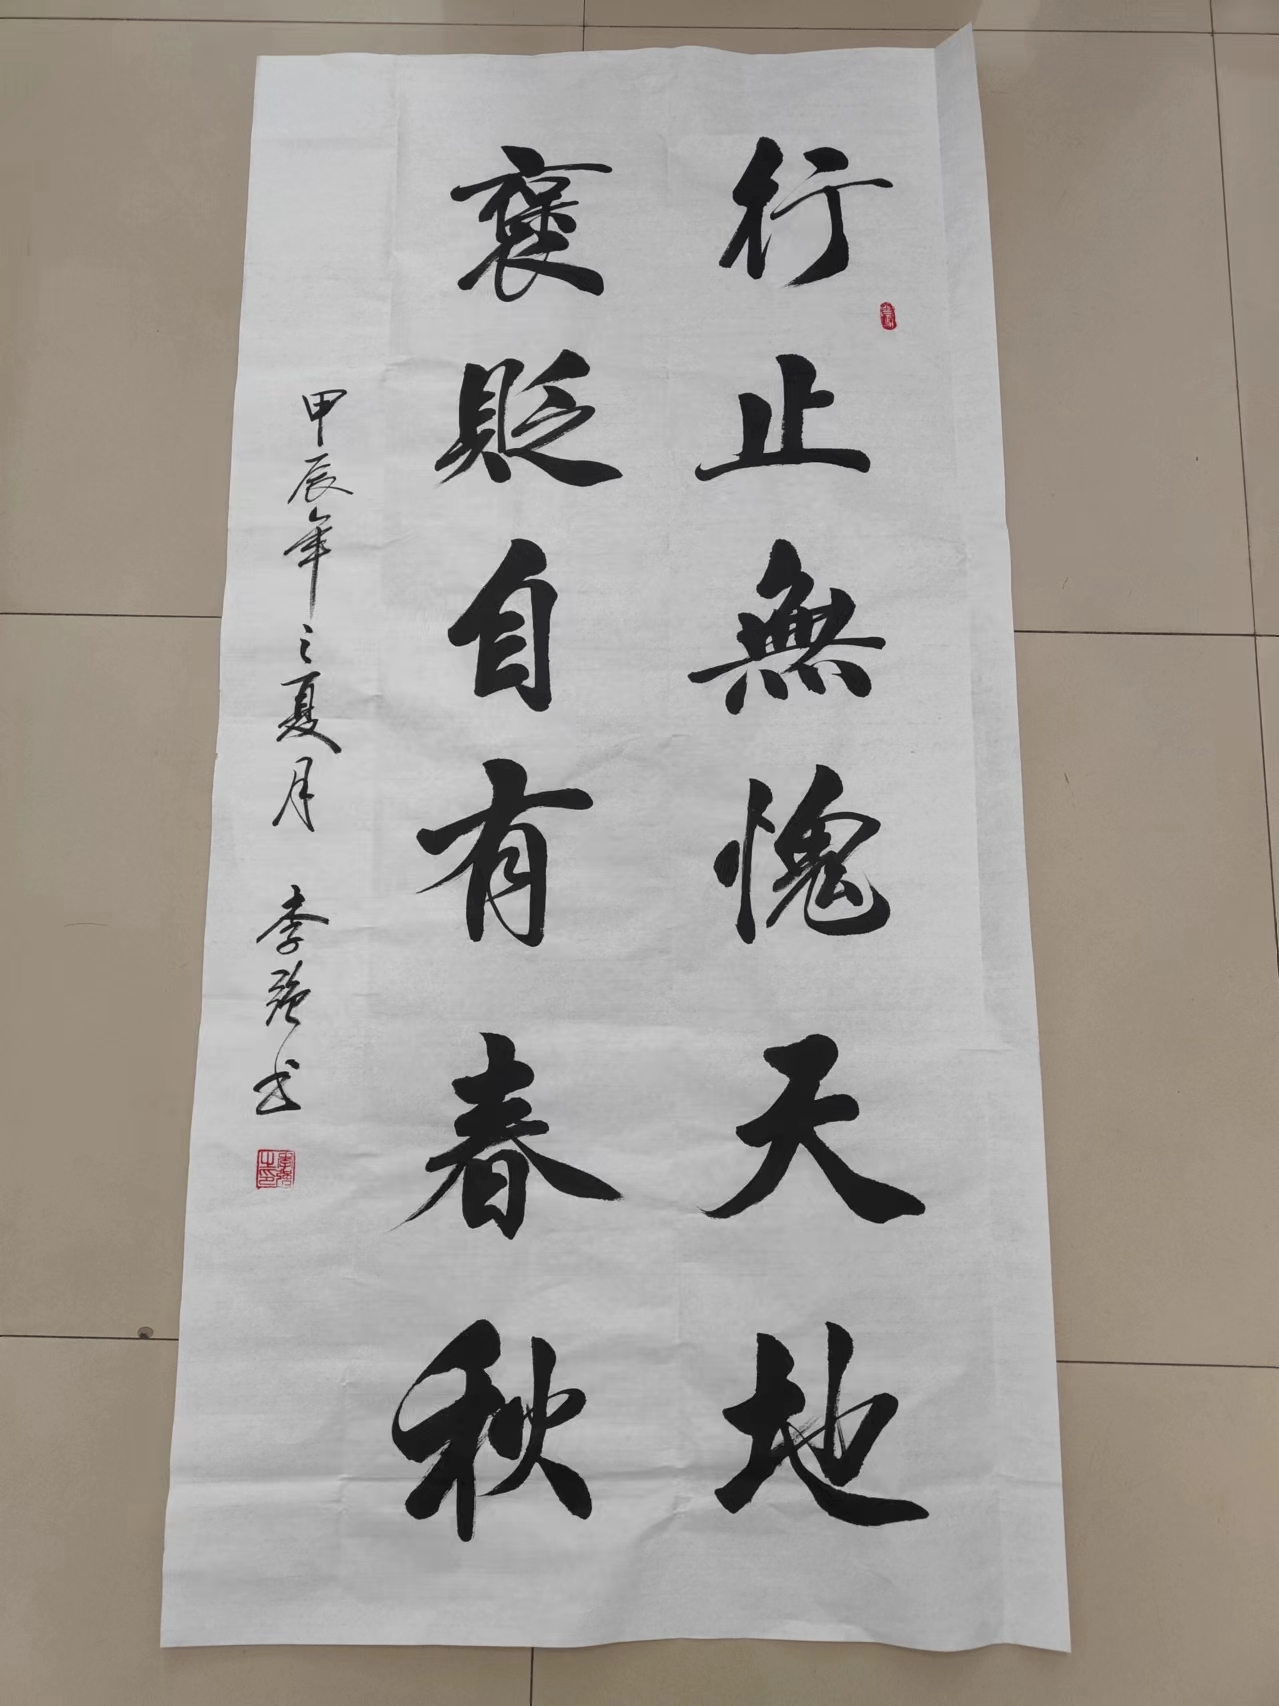 行止無愧天地
褒貶自有春秋
甲辰年之夏月 李強书